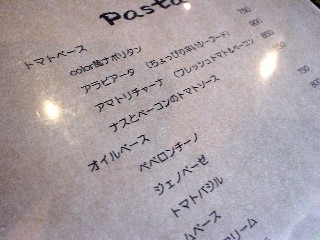 Pasta
トマトベース
color風ナポリタン 750
アラビアータ (ちょっぴり辛いシーフード) 900
アマトリチャーナ (フレッシュトマト&ベーコン) 850
ナスとベーコンのトマトソース
オイルベース
ペペロンチーノ
ジェノベーゼ
トマトバジル
ムベース
リーム